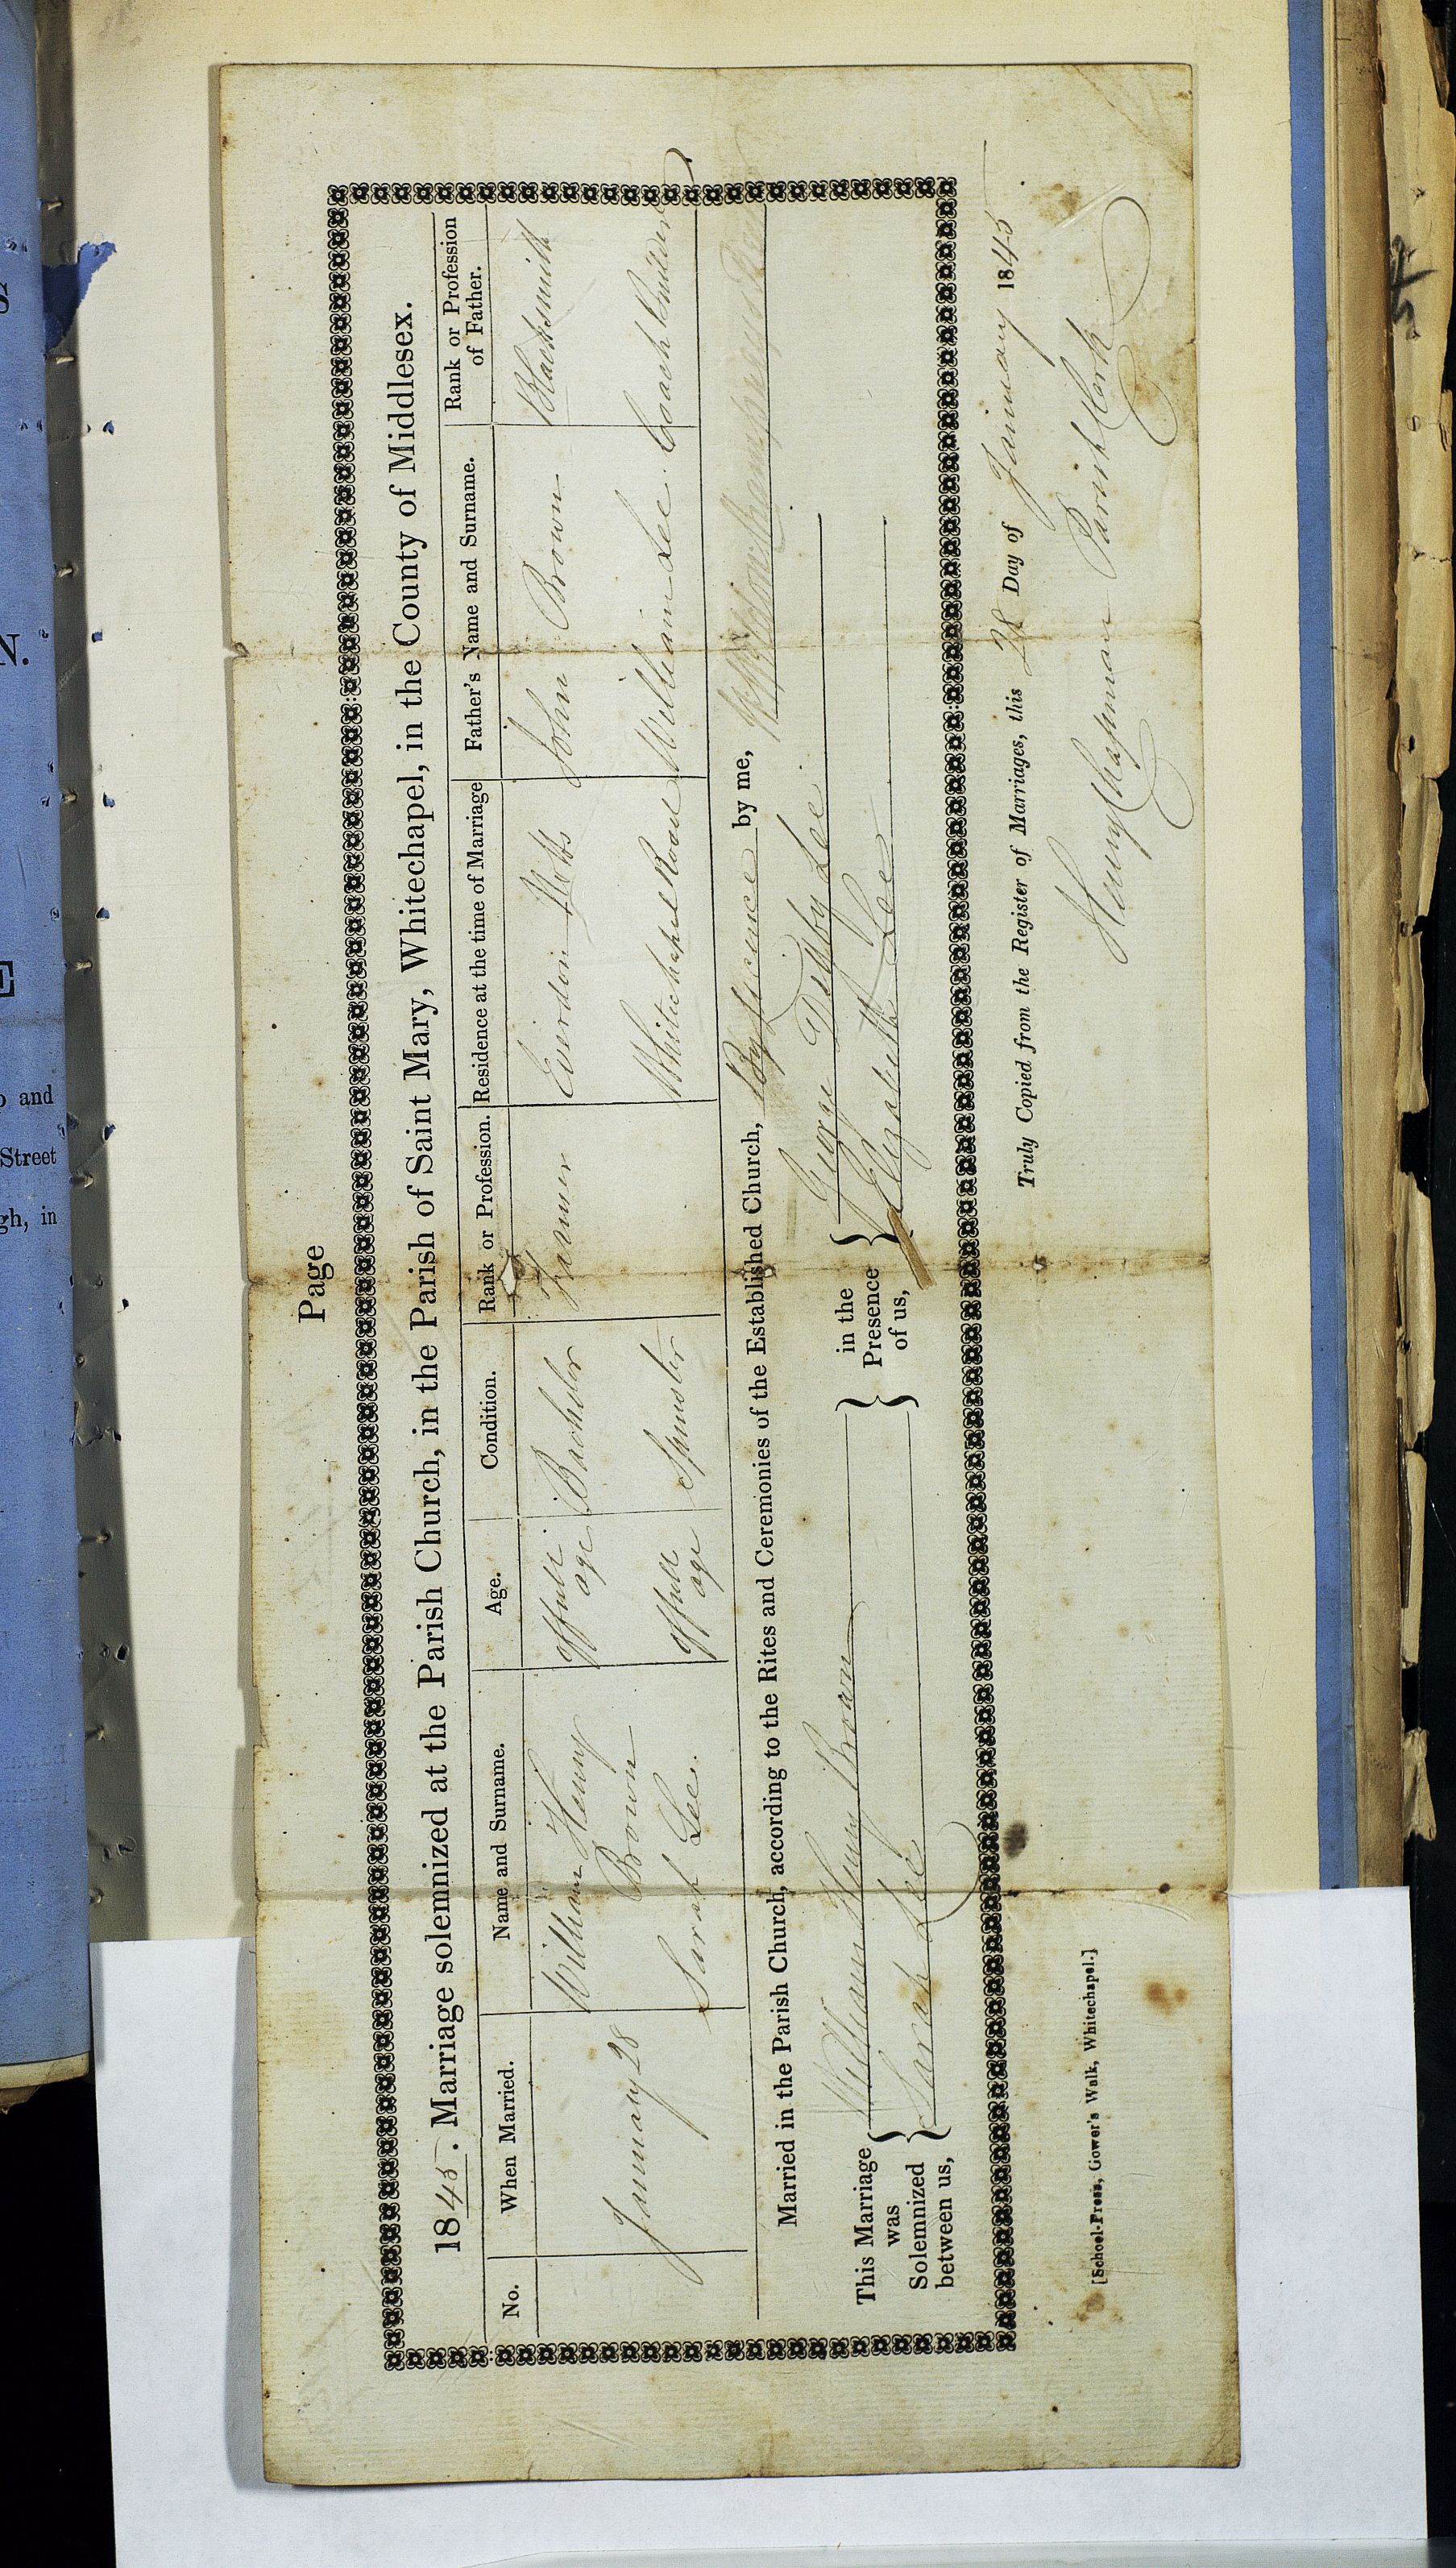 Page
1845. Marriage solemnized at the Parish Church, in the Parish of Saint Mary, Whitechapel, in the County of Middlesex.
No. When Married. Name and Surname. Age. Condition. Rank or Profession. Residence at the time of Marriage Father's Name and Surname. Rank or Profession of Father.
January 28
William Henry Brown of full age Bachelor Farmer Everdon John Brown Blacksmith
Sarah Lee. of full age Spinster Whitechapel Road William Lee Coach Builder
Married in the Parish Church, according to the Rites and Ceremonies of the Established Church, By Licence by me,
This Marriage was Solemnized between us,
William Henry Brown
Sarah Lee
in the Presence of us,
George Digby Lee
Elizabeth Lee
Truly Copied from the Register of Marriages, this 28 Day of January 1845
Henry Chapman Parish Clerk
[School-Press, Gower's Walk, Whitechapel.]
N.
and
Street
gh, in